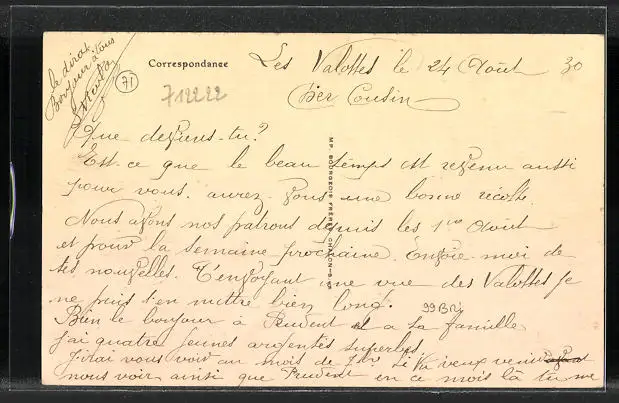 Correspondance
Les Valottes le 24 Août 30
71
712222
Cher Cousin
Que deviens-tu?
Est-ce que le beau temps est revenu aussi
pour vous. aurez-vous une bonne récolte.
Nous avons nos patrons depuis les 1ers Août
et pour la semaine prochaine. Envoie-moi de
tes nouvelles. T'envoyant une vue des Valottes je
ne puis t'en mettre bien long.
99BRI
Bien le bonjour à Prudent et a sa famille
j'ai quatre jeunes argentés superbes
J'irai vous voir au mois de 7bre. Si tu veux venir
nous voir ainsi que Prudent en ce mois là tu me
le diras
Bonjour à tous
MP. BOURGEOIS FRÈRES, CHALON-S-S